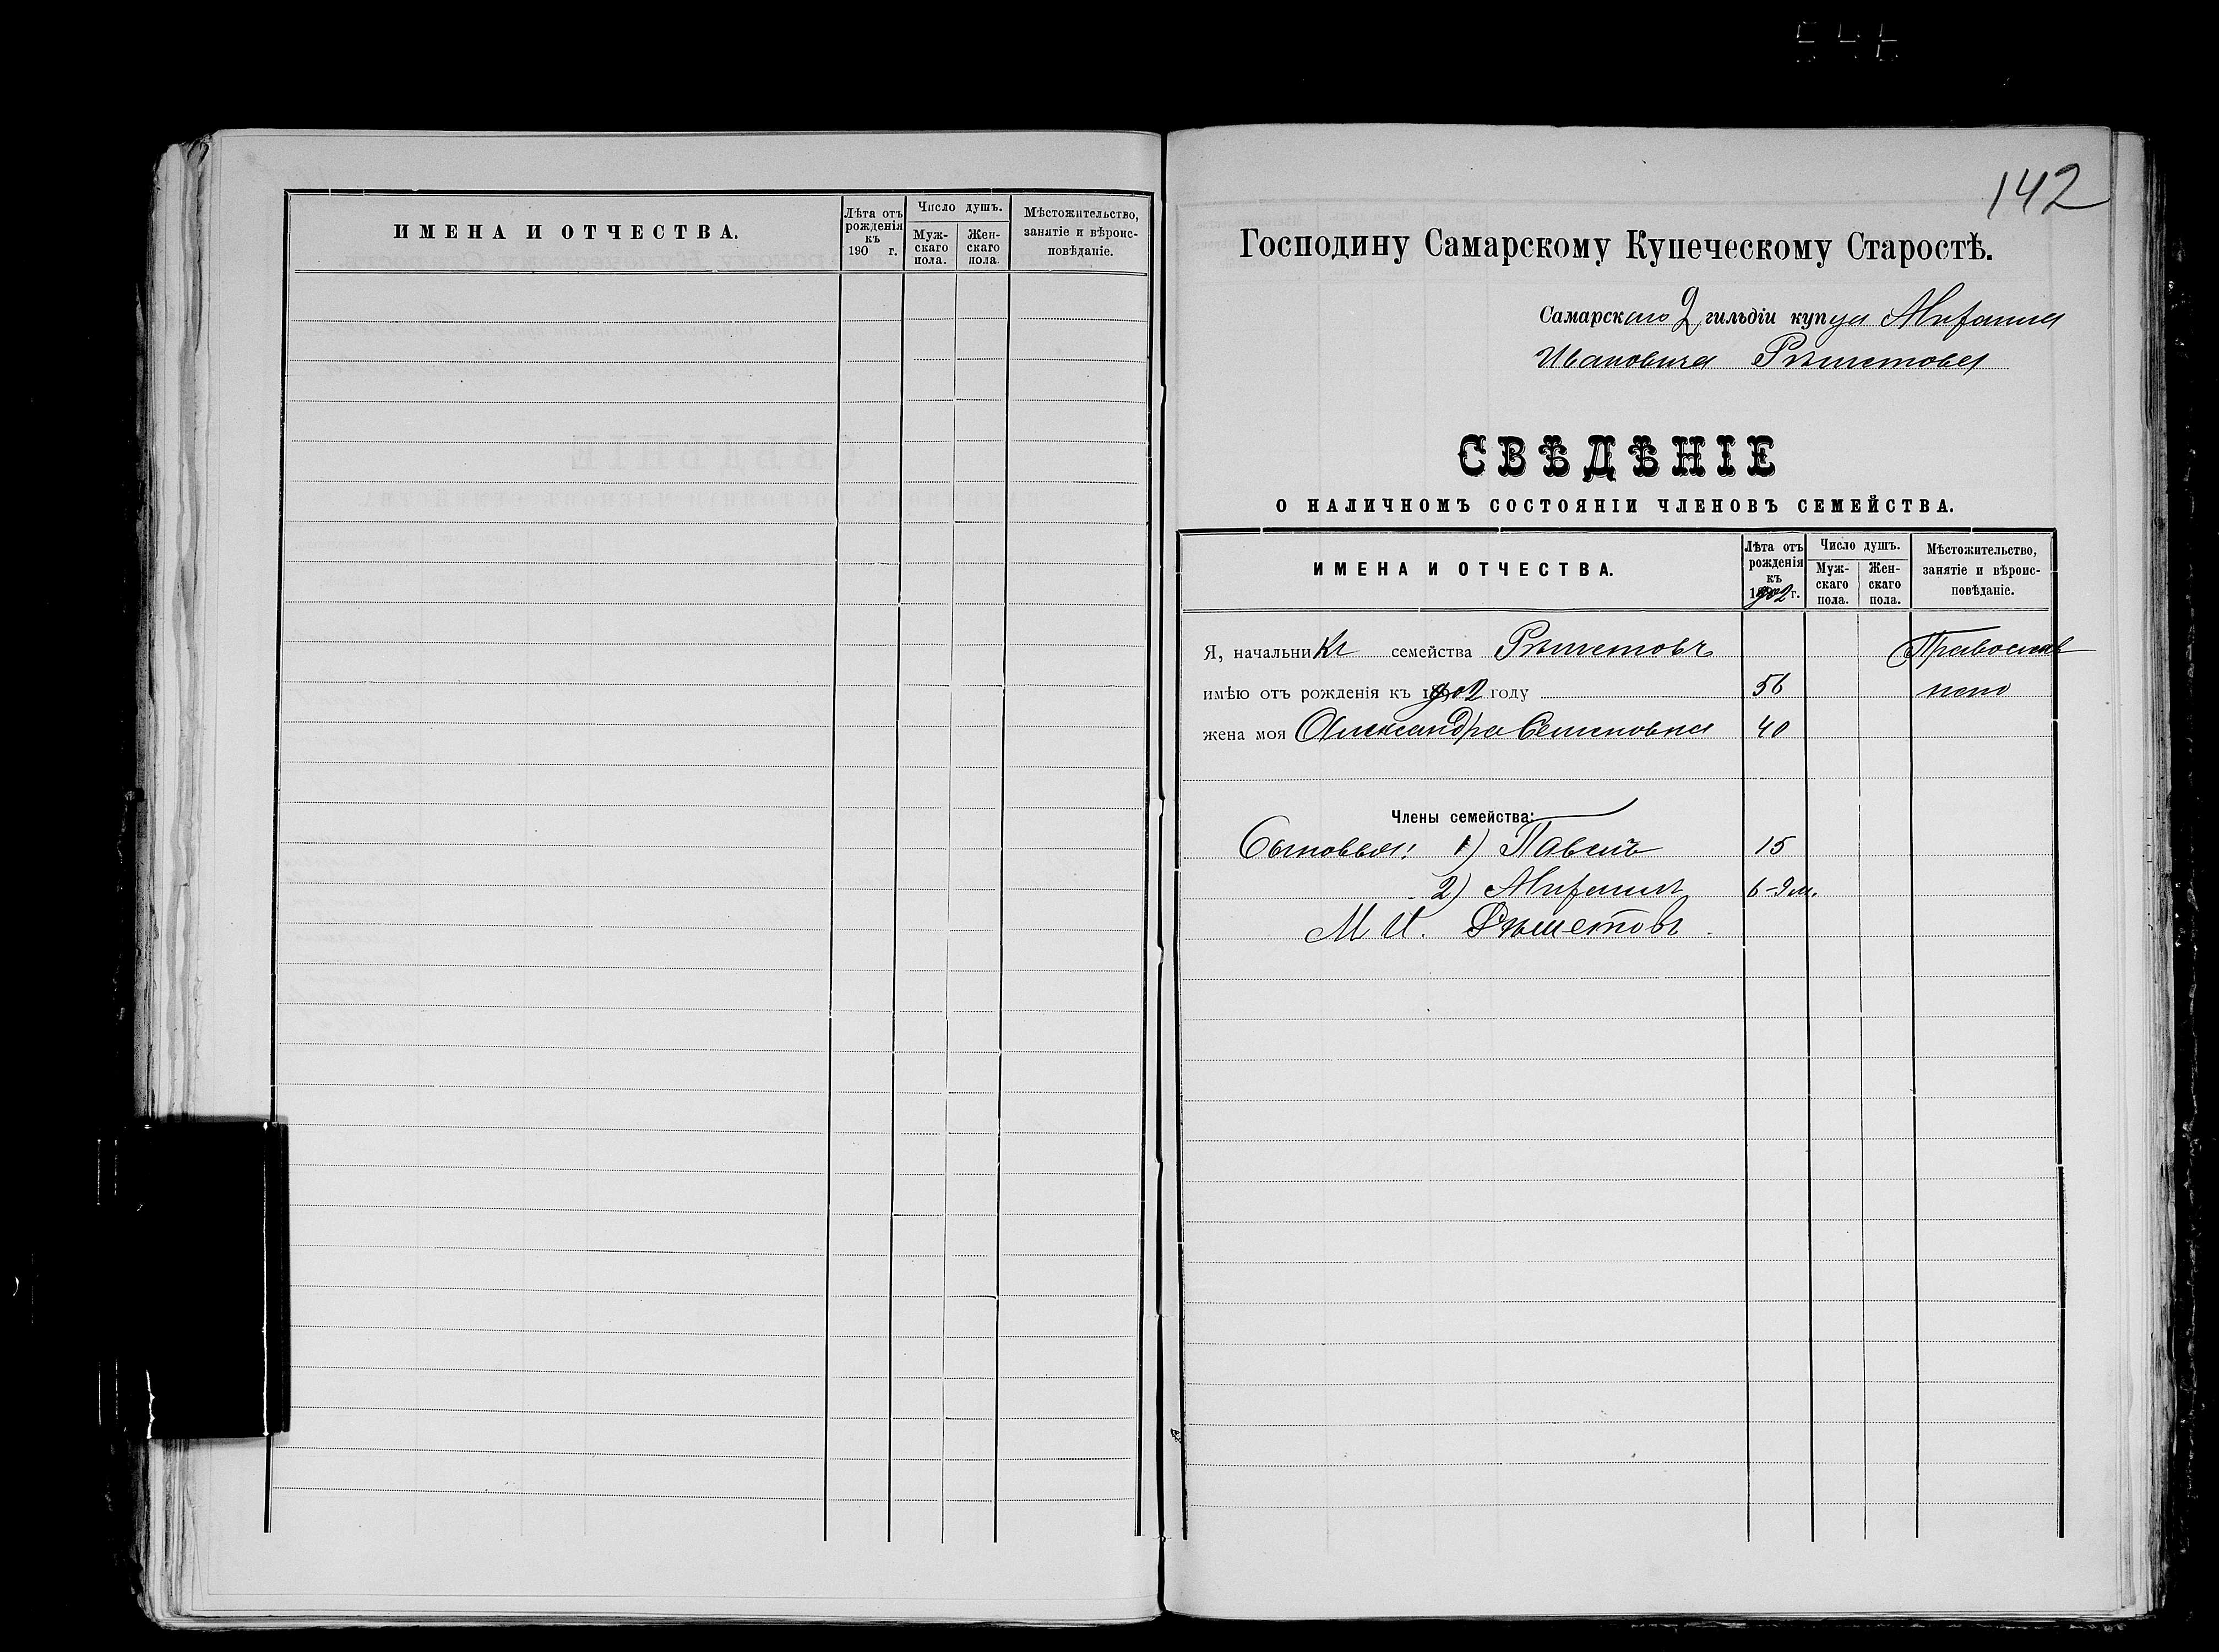 ИМЕНА И ОТЧЕСТВА.
Лѣта отъ рожденія къ 190 г.
Число душъ.
Мужскаго пола.
Женскаго пола.
Мѣстожительство, занятіе и вѣроисповѣданіе.
142
Господину Самарскому Купеческому Старостѣ.
Самарскаго 2 гильдіи купца Михаила
Ивановича Рѣшетова
СВѢДѢНІЕ
О НАЛИЧНОМЪ СОСТОЯНІИ ЧЛЕНОВЪ СЕМЕЙСТВА.
ИМЕНА И ОТЧЕСТВА.
Лѣта отъ рожденія къ 1902 г.
Число душъ.
Мужскаго пола.
Женскаго пола.
Мѣстожительство, занятіе и вѣроисповѣданіе.
Я, начальникъ семейства Рѣшетовъ Православ
имѣю отъ рожденія къ 1902 году 56 наго
жена моя Александра Семеновна 40
Члены семейства:
Сыновья: 1) Павелъ 15
2) Михаилъ 6-9 м.
М И. Рѣшетовъ